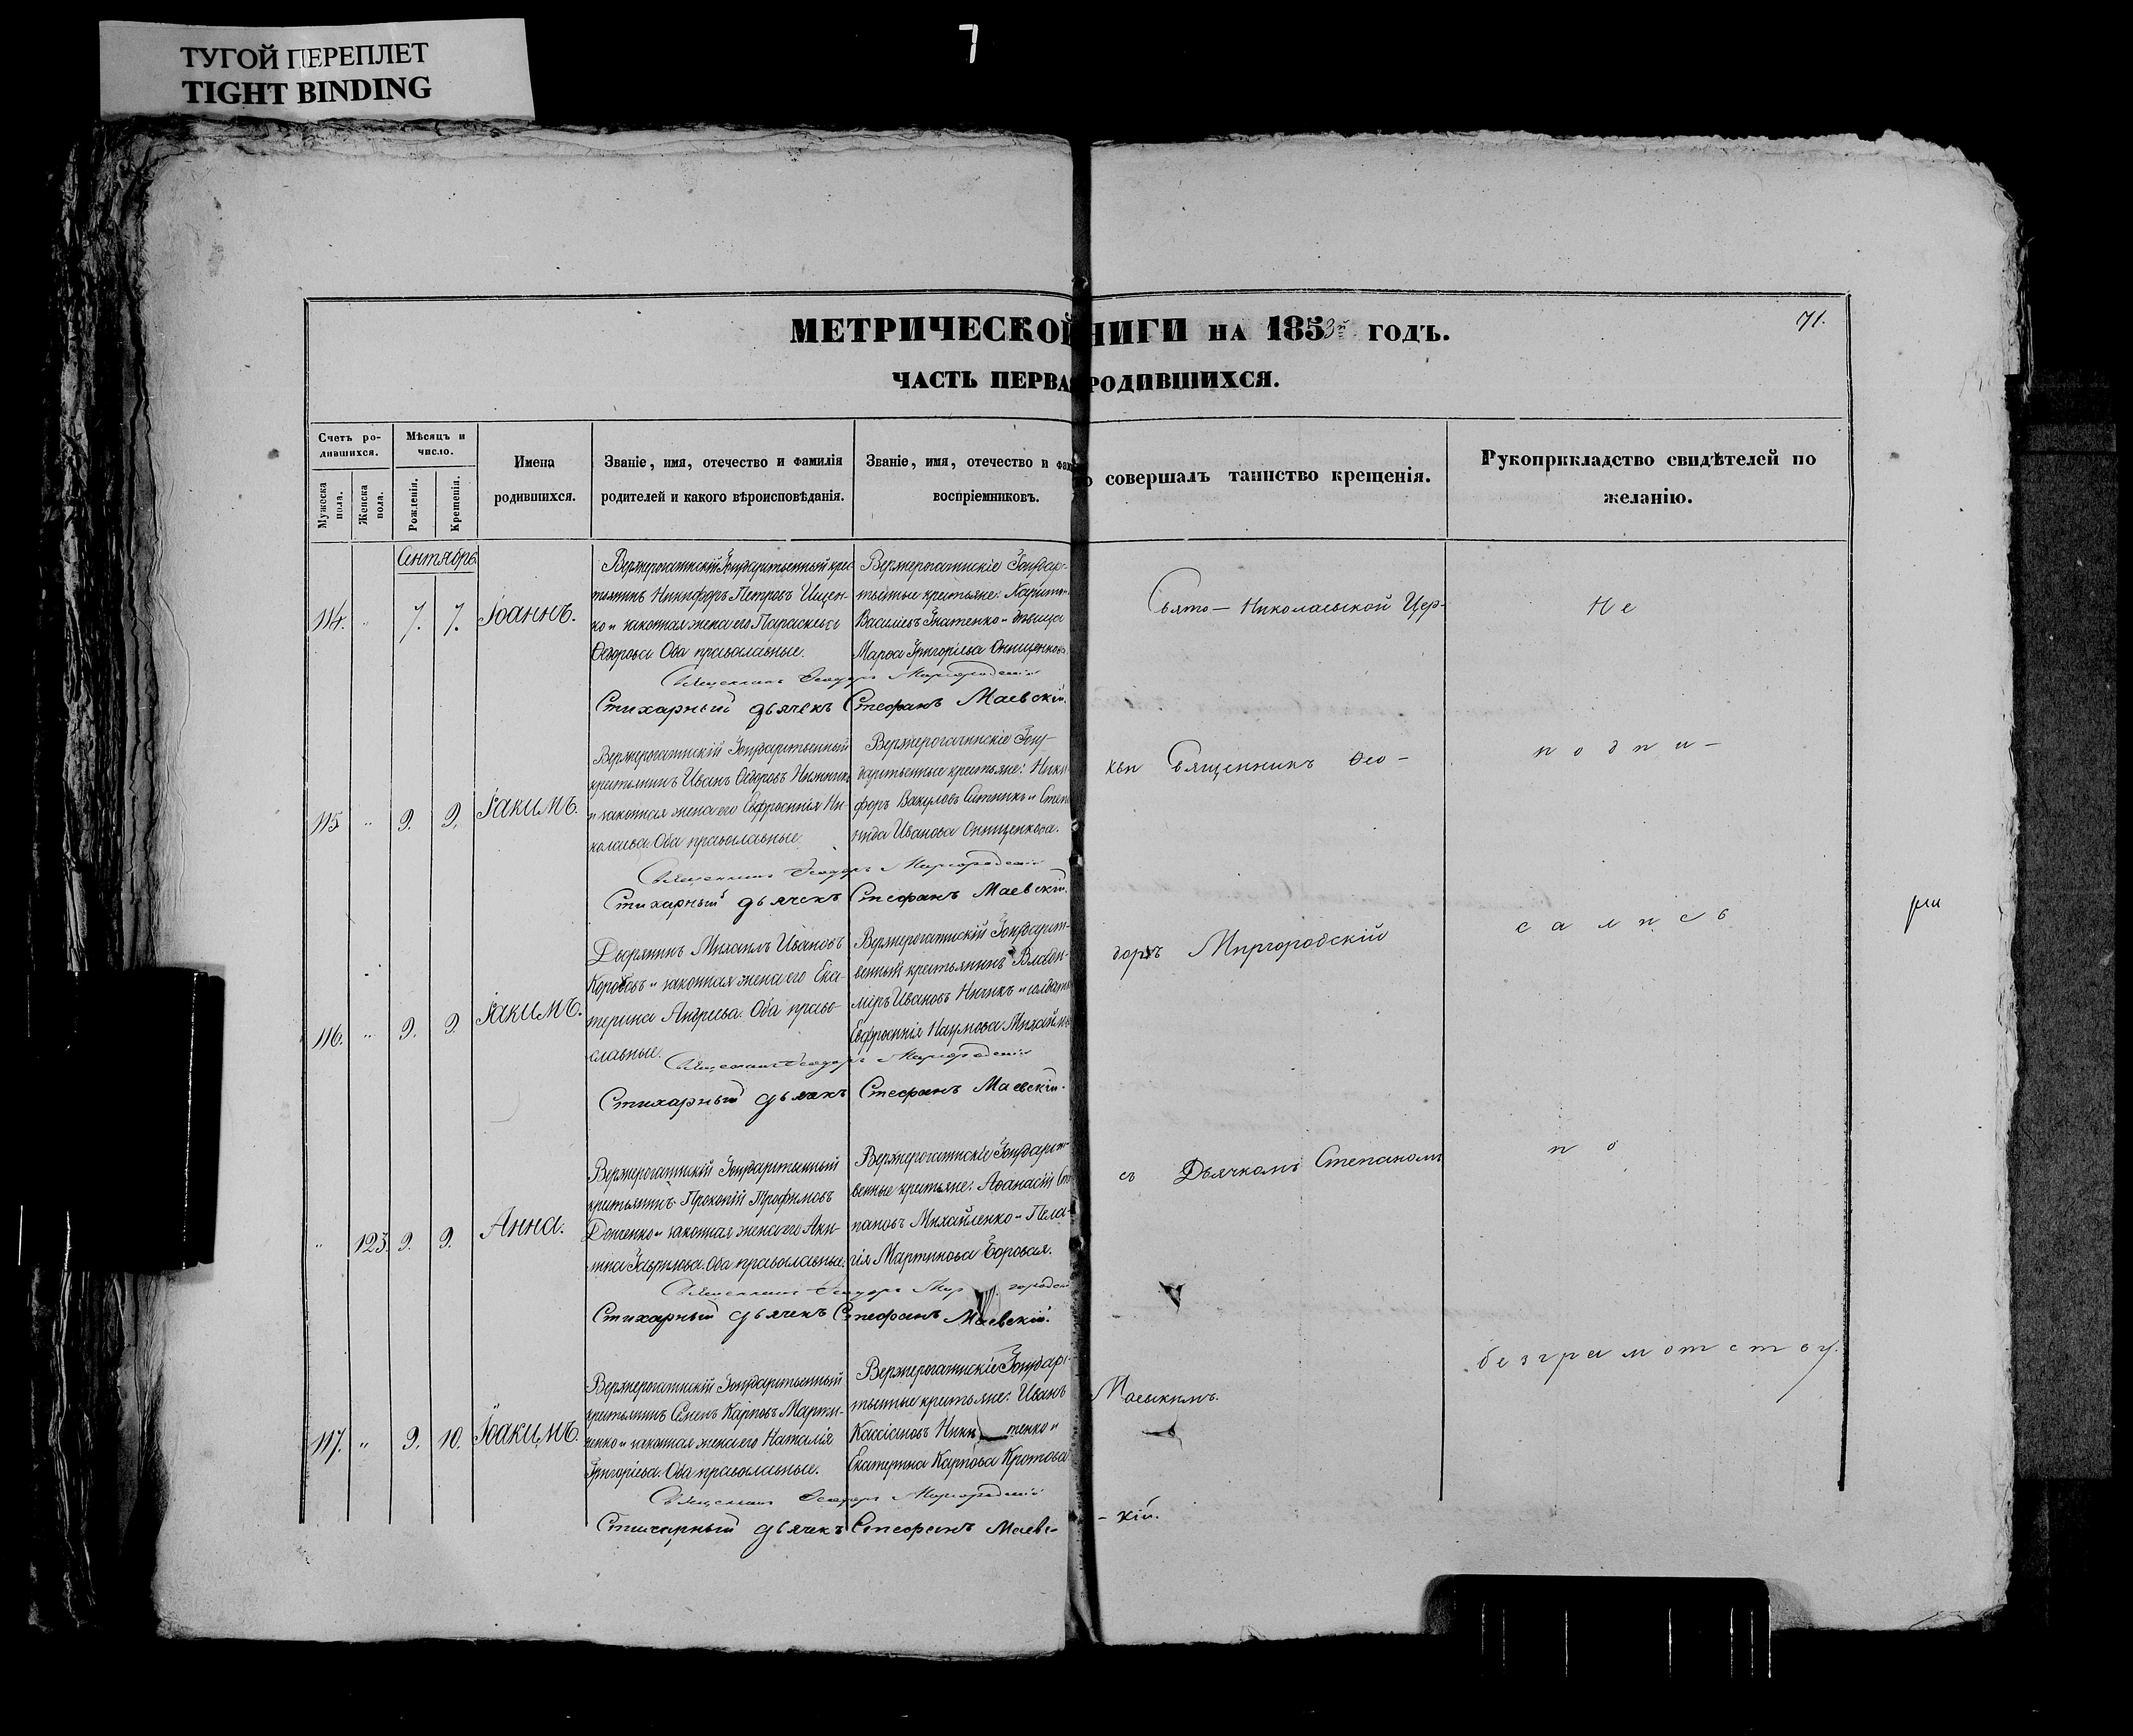 ТУГОЙ ПЕРЕПЛЕТ
TIGHT BINDING
7
71.
МЕТРИЧЕСКОЙ НИГИ НА 1853й ГОДЪ.
ЧАСТЬ ПЕРВАЯ РОДИВШИХСЯ.
Счетъ ро-
дившихся.
Мужеска пола.
Женска пола.
Мѣсяцъ и
число.
Рожденія.
Крещенія.
Имена
родившихся.
Званіе, имя, отечество и фамилія
родителей и какого вѣроисповѣданія.
Званіе, имя, отечество и фам
воспріемниковъ.
о совершалъ таинство крещенія.
Рукоприкладство свидѣтелей по
желанію.
Сентябрь
114. " 7. 7. Іоаннъ.
Верхнерогачикскій Государственный крес-
тьянинъ Никифоръ Петровъ Ищен-
ко и законная жена его Параскева
Ѳедорова. Оба православные.
Верхнерогачикскіе Государ-
ственные крестьяне: Харитонъ
Василіевъ Игнатенко и дѣвица
Марѳа Григоріева Онищенкова.
Священникъ Ѳеодоръ Миргородскій
Стихарный дьячекъ Стефанъ Маевскій.
115. " 9. 9. Іакимъ.
Верхнерогачикскій Государственный
крестьянинъ Иванъ Ѳедоровъ
и законная жена его Евфросинія Ни-
колаева. Оба православные.
Верхнерогачикскіе Госу-
дарственные крестьяне: Ники-
форъ Вакуловъ Ситникъ и Степа-
нида Иванова Онищенкова.
Священникъ Ѳеодоръ Миргородскій
Стихарный дьячекъ Стефанъ Маевскій.
116. " 9. 9. Іакимъ.
Дворянинъ Михаилъ Ивановъ
Коробовъ и законная жена его Ека-
терина Андреева. Оба право-
славные.
Верхнерогачикскій Государст-
венный крестьянинъ Влади-
міръ Ивановъ и солдатка
Евфросинія Наумова
Священникъ Ѳеодоръ Миргородскій
Стихарный дьячекъ Стефанъ Маевскій.
" 123. 9. 9. Анна.
Верхнерогачикскій Государственный
крестьянинъ Прокопій Трофимовъ
Доценко и законная жена его Аки-
лина Гаврилова. Оба православные.
Верхнерогачикскіе Государст-
венные крестьяне: Аѳанасій Сте-
пановъ Михайленко и Пела-
гія Мартинова Боровая.
Священникъ Ѳеодоръ Миргородскій
Стихарный дьячекъ Стефанъ Маевскій.
117. " 9. 10. Іоакимъ.
Верхнерогачикскій Государственный
крестьянинъ Семенъ Карповъ Марти-
ненко и законная жена его Наталія
Григоріева. Оба православные.
Верхнерогачикскіе Государс-
твенные крестьяне: Иванъ
Кассіановъ Никитенко и
Екатерина Карпова Кротова
Священникъ Ѳеодоръ Миргородскій
Стихарный дьячекъ Стефанъ Маевс-
-кій.
Свято-Николаевской Цер-
кви Священникъ Ѳео-
доръ Миргородскій
съ Дьячкомъ Степаномъ
Маевскимъ.
Не
подпи-
сались
по
безграмотству.